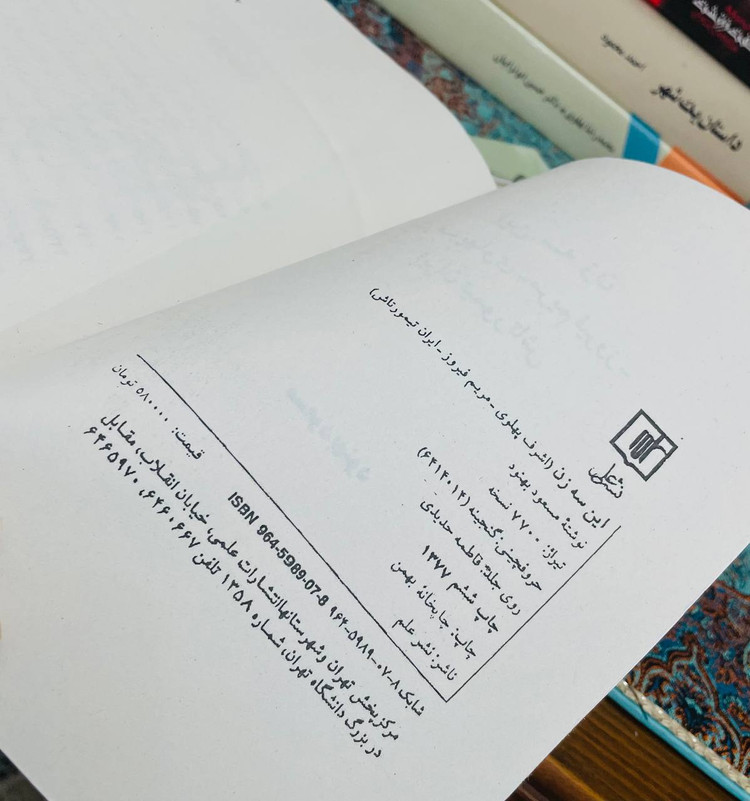 داستان یک شهر
احمد محمود
نشر علم
این سه زن (اشرف پهلوی ـ مریم فیروز ـ ایران تیمورتاش)
نوشتهٔ مسعود بهنود
تیراژ: ۷۷۰۰ نسخه
حروفچینی: گنجینه (۶۴۱۴۰۱۲)
روی جلد: فاطمه حدیدی
چاپ ششم ۱۳۷۷
چاپ: چاپخانهٔ بهمن
ناشر: نشر علم
قیمت: ۵۸۰۰۰۰ تومان
شابک ۸-۰۷-۵۹۸۹-۹۶۴ ISBN 964-5989-07-8
مرکز پخش تهران و شهرستانها انتشارات علمی، خیابان انقلاب، مقابل
در بزرگ دانشگاه تهران، شماره ۱۳۵۸ تلفن ۶۴۶۰۶۶۷، ۶۴۶۵۹۷۰